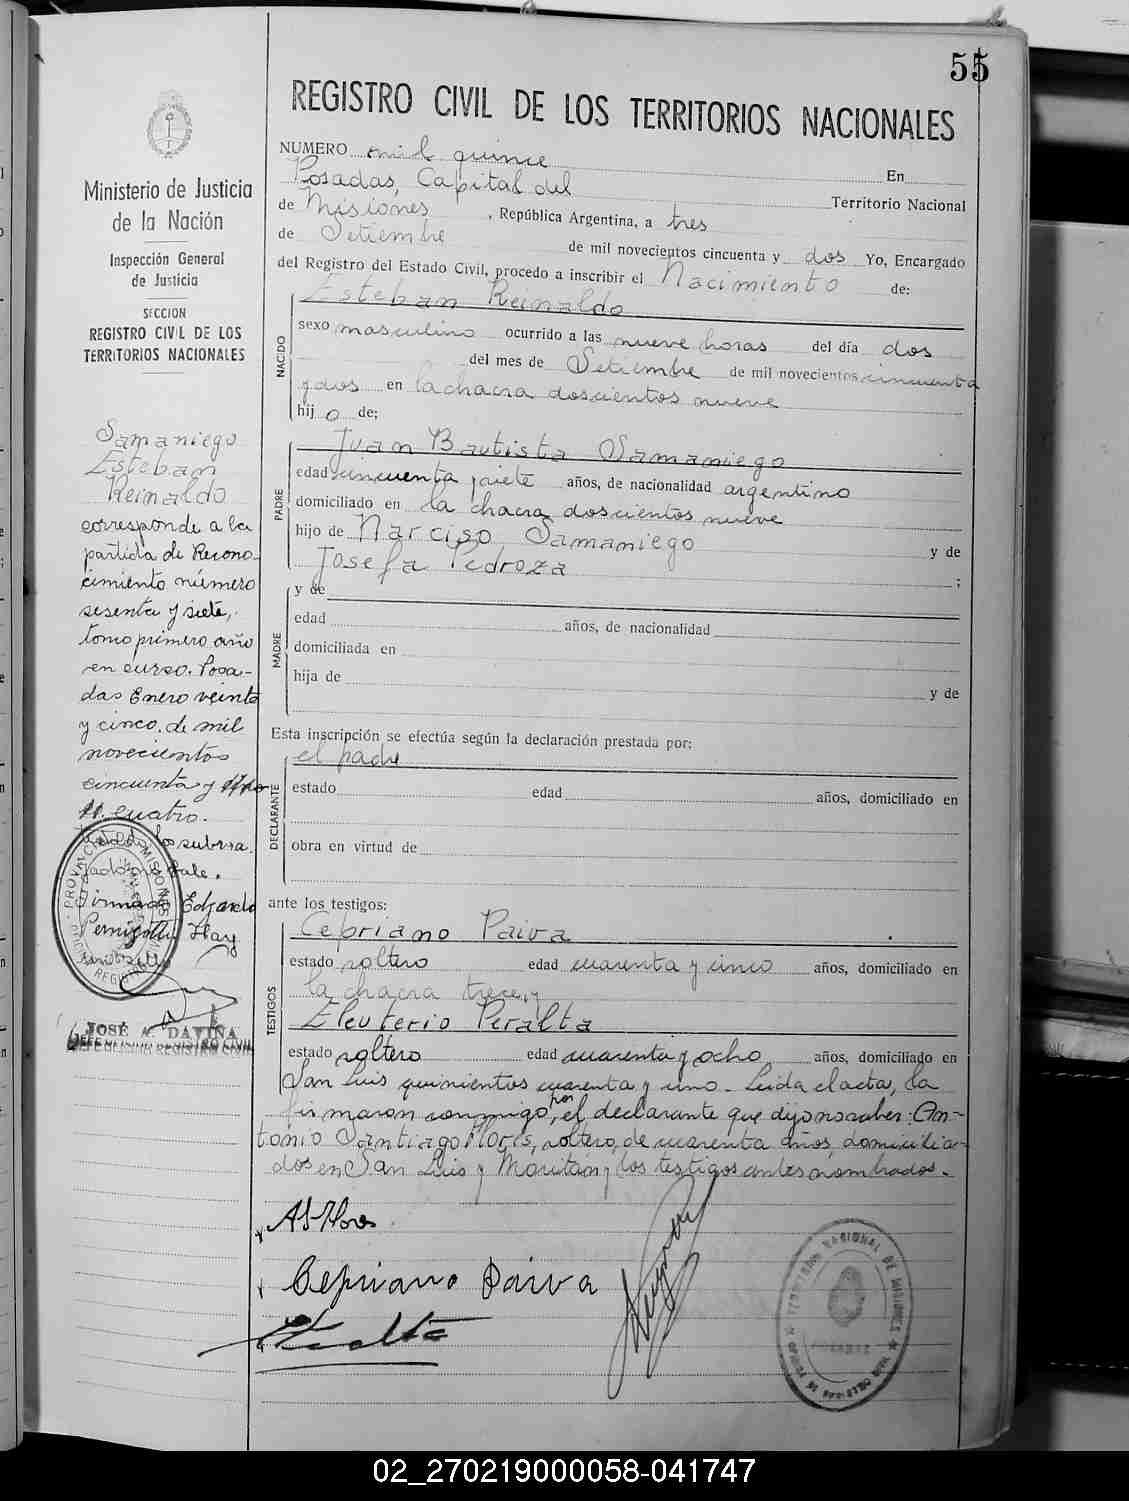 55
REGISTRO CIVIL DE LOS TERRITORIOS NACIONALES
NUMERO mil quince En
Posadas, Capital del Territorio Nacional
de Misiones, República Argentina, a tres
de Setiembre de mil novecientos cincuenta y dos Yo, Encargado
del Registro del Estado Civil, procedo a inscribir el Nacimiento de:
NACIDO
Esteban Reinaldo
sexo masculino ocurrido a las nueve horas del día dos
del mes de Setiembre de mil novecientos cincuenta
y dos en la chacra doscientos nueve
hij o de;
PADRE
Juan Bautista Samaniego
edad cincuenta y siete años, de nacionalidad argentino
domiciliado en la chacra doscientos nueve
hijo de Narciso Samaniego y de
Josefa Pedroza ;
MADRE
y de
edad años, de nacionalidad
domiciliada en
hija de y de
Esta inscripción se efectúa según la declaración prestada por:
DECLARANTE
el padre
estado edad años, domiciliado en
obra en virtud de
ante los testigos:
TESTIGOS
Cepriano Paiva
estado soltero edad cuarenta y cinco años, domiciliado en
la chacra trece, y
Eleuterio Peralta
estado soltero edad cuarenta y ocho años, domiciliado en
San Luis quinientos cuarenta y uno. Leida el acta, la
firmaron conmigo, por el declarante que dijo no saber: An-
tonio Santiago Flores, soltero, de cuarenta años, domicilia-
dos en San Luis y Maritain y los testigos antes nombrados.
AS Flores
Cepriano Paiva
Peralta
TERRITORIO NACIONAL DE MISIONES
Ministerio de Justicia
de la Nación
Inspección General
de Justicia
SECCION
REGISTRO CIVIL DE LOS
TERRITORIOS NACIONALES
Samaniego
Esteban
Reinaldo
corresponde a la
partida de Recono-
cimiento número
sesenta y siete,
tomo primero año
en curso. Posa-
das Enero veinte
y cinco de mil
novecientos
cincuenta y
cuatro.
lo subra-
yado no vale.
Firmado Edgardo
Hay
un sello
PROVINCIA DE MISIONES
REGISTRO
JOSÉ A. DAVIÑA
JEFE OFICINA REGISTRO CIVIL
02_270219000058-041747